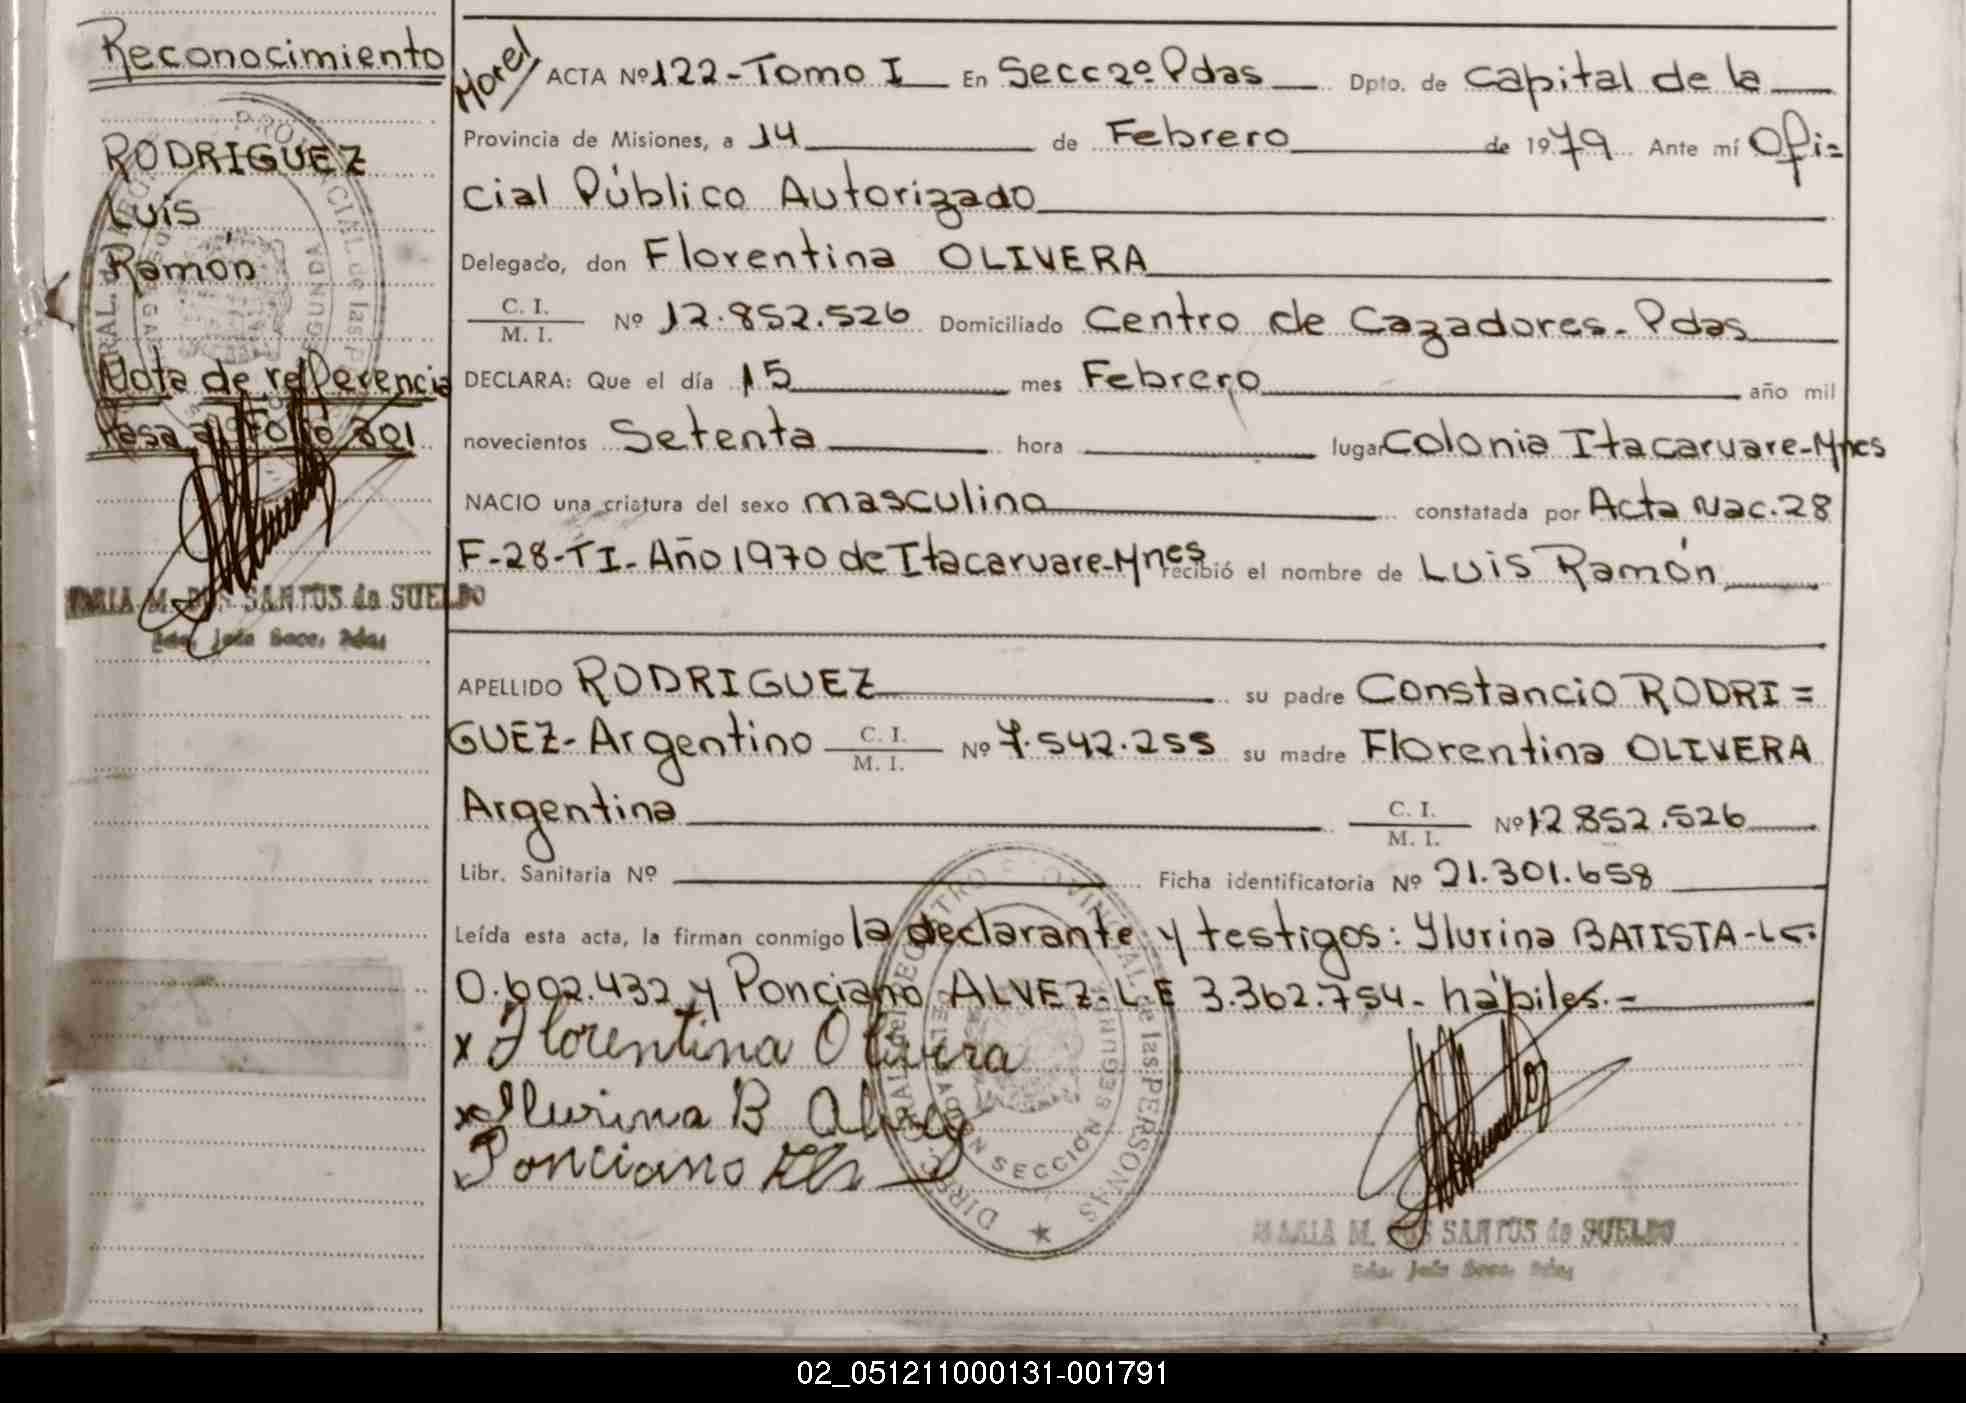 Reconocimiento
RODRIGUEZ
Luis
Ramón
Nota de refferencia
Pasa al Folio 301
MARIA M. DOS SANTOS de SUELDO
Morel
ACTA Nº 122-Tomo I En Secc 2º Pdas Dpto. de Capital de la
Provincia de Misiones, a 14 de Febrero de 1979 Ante mí Ofi=
cial Público Autorizado
Delegado, don Florentina OLIVERA
C. I.
M. I. Nº 12.852.526 Domiciliado Centro de Cazadores-Pdas
DECLARA: Que el día 15 mes Febrero año mil
novecientos Setenta hora lugar Colonia Itacaruare-Mnes
NACIO una criatura del sexo masculino constatada por Acta Nac. 28
F-28-TI-Año 1970 de Itacaruare-Mnes recibió el nombre de Luis Ramón
APELLIDO RODRIGUEZ su padre Constancio RODRI=
GUEZ-Argentino C. I. M. I. Nº 7.542.255 su madre Florentina OLIVERA
Argentina C. I. M. I. Nº 12.852.526
Libr. Sanitaria Nº Ficha identificatoria Nº 21.301.658
Leída esta acta, la firman conmigo la declarante y testigos: Ylurina BATISTA-LC.
0.602.432 y Ponciano ALVEZ-L.E 3.362.754- hábiles.=
x Florentina Olivera
x Ilurina B Alvez
Ponciano
DIRECCION GENERAL del REGISTRO PROVINCIAL de las PERSONAS
DELEGACION SECCION SEGUNDA
MARIA M. DOS SANTOS de SUELDO
02_051211000131-001791